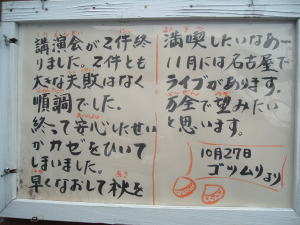 講演会が2件終
りました。2件とも
大きな失敗はなく
順調でした。
終って安心したせい
かカゼをひいて
しまいました。
早くなおして秋を
満喫したいなあ〜
11月には名古屋で
ライブがあります。
万全で望みたい
と思います。
10月27日
ゴツムリより